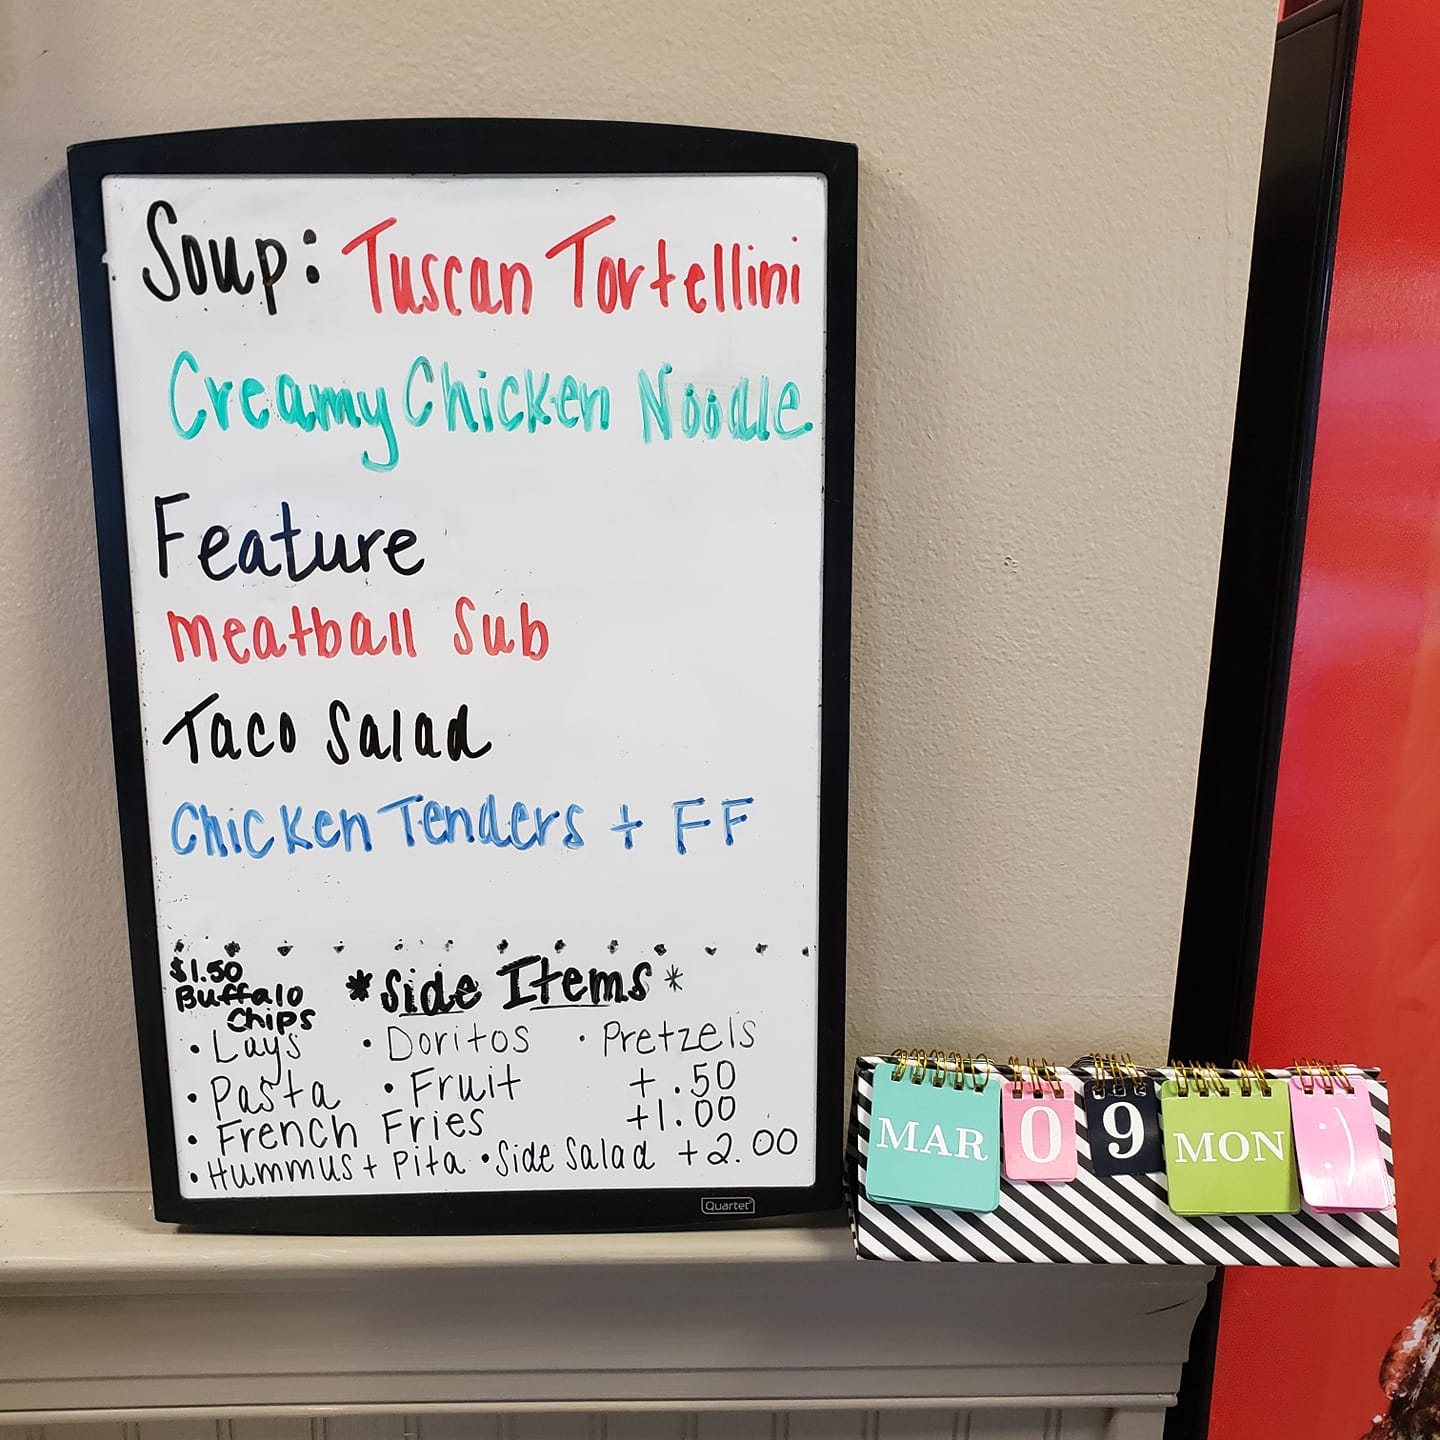 Soup: Tuscan Tortellini
Creamy Chicken Noodle
Feature
meatball Sub
Taco Salad
Chicken Tenders + FF
$1.50
Buffalo
Chips
*Side Items*
• Lays • Doritos • Pretzels
• Pasta • Fruit + .50
• French Fries +1.00
• Hummus + Pita • Side Salad +2.00
Quartet
MAR 09 MON :)